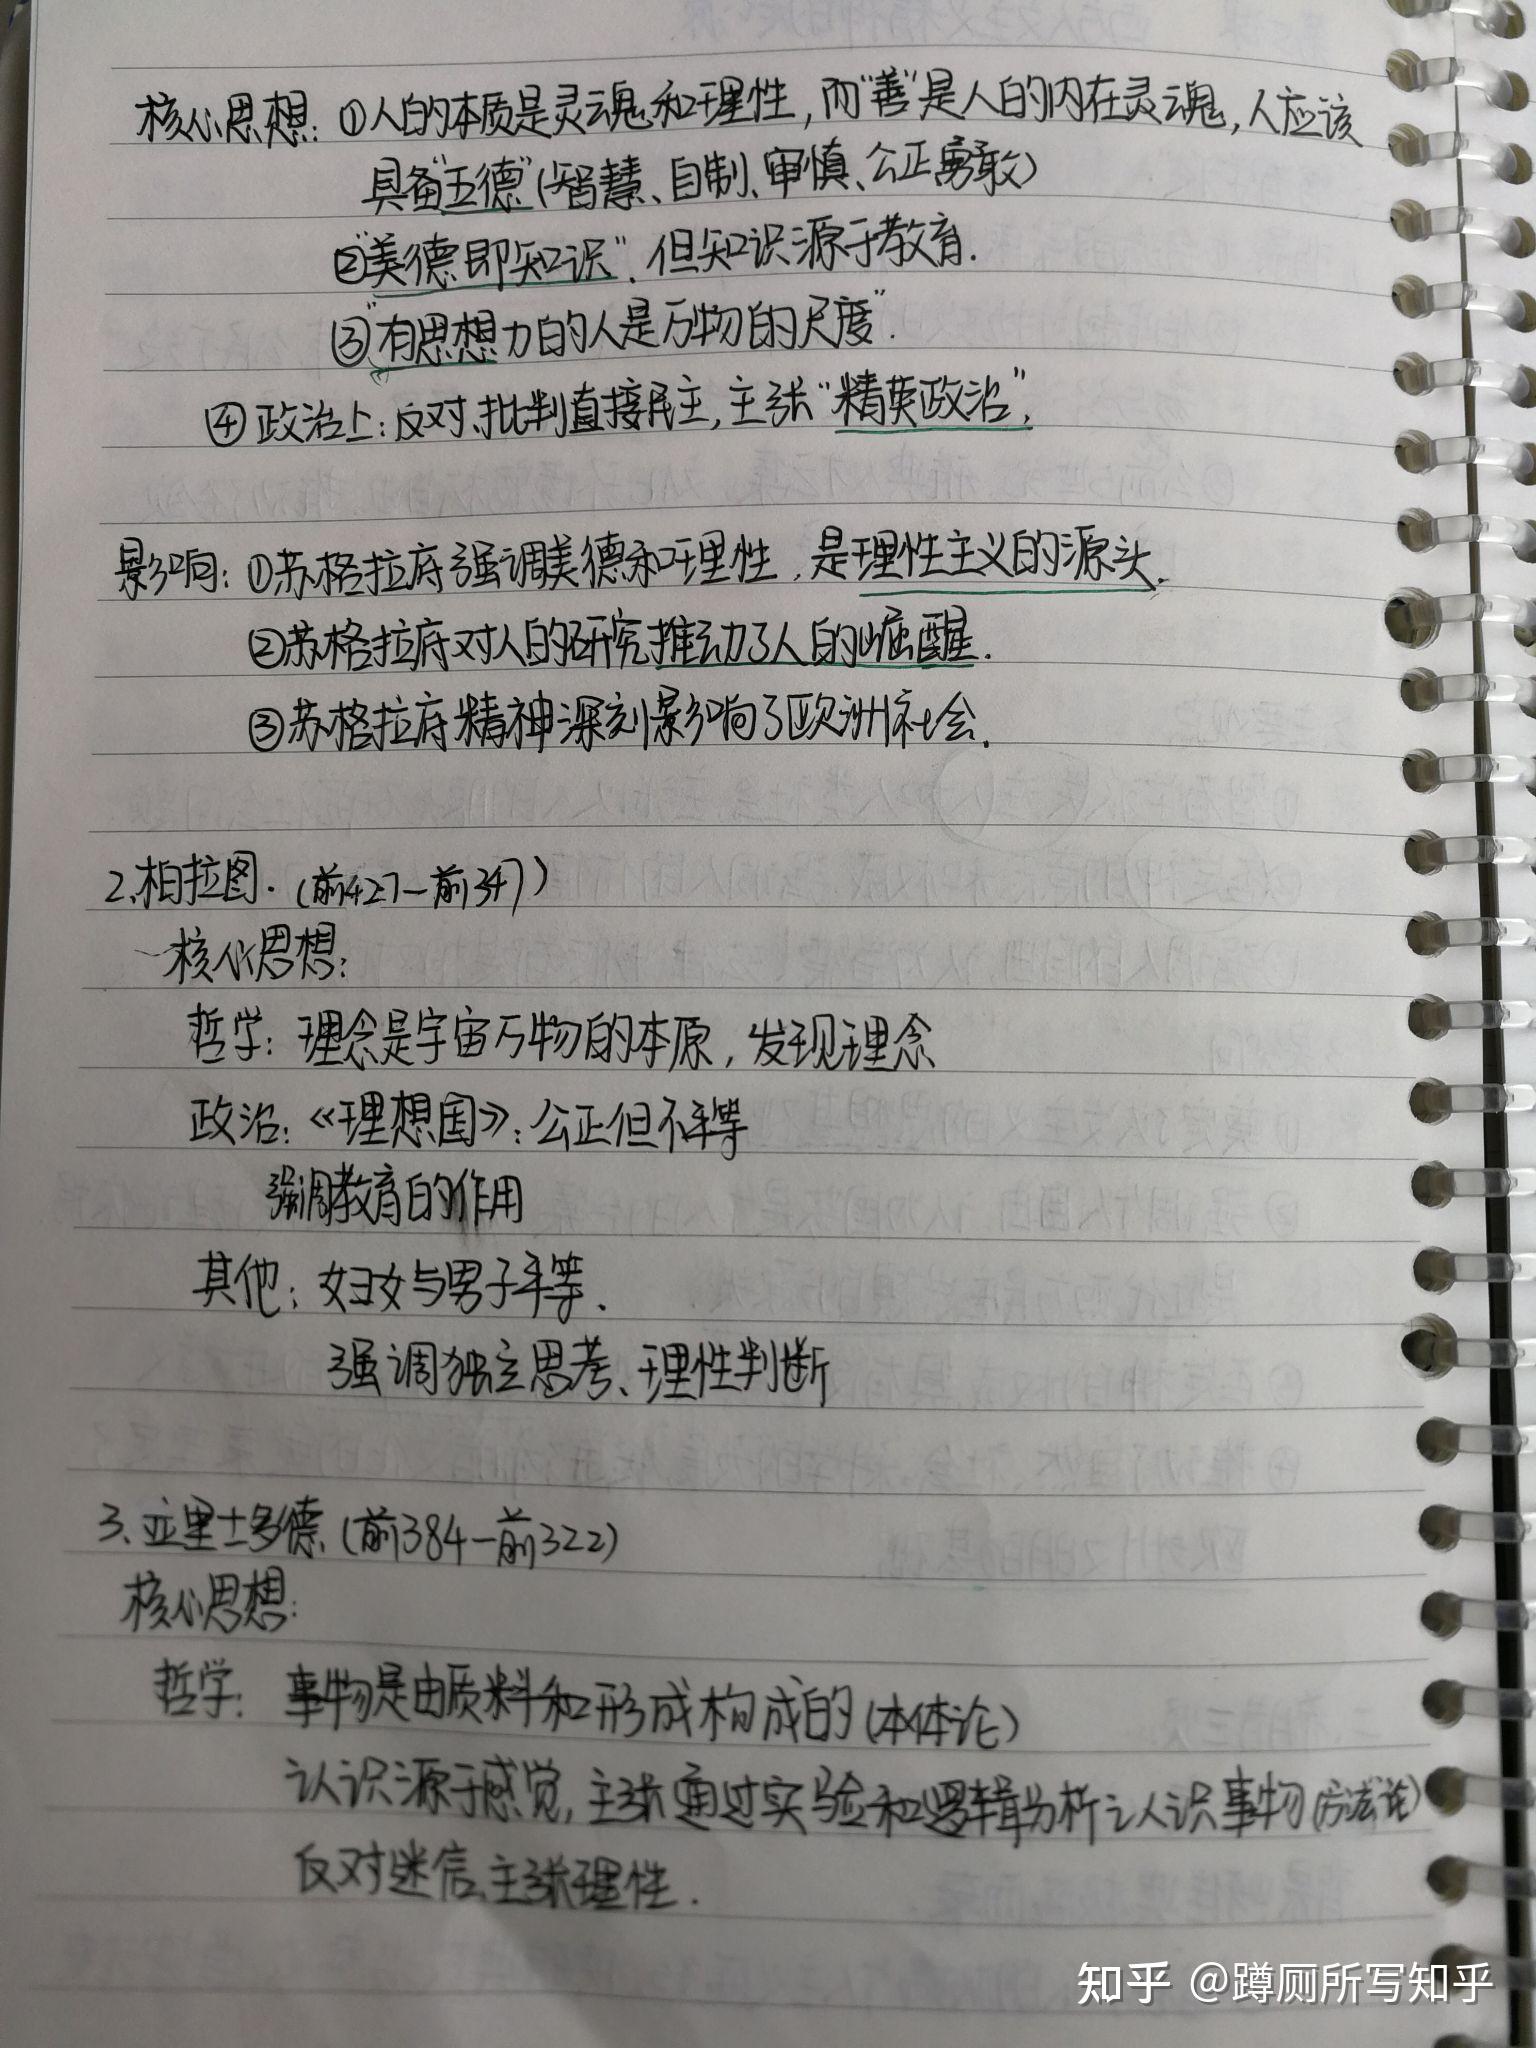 核心思想：①人的本质是灵魂和理性，而"善"是人的内在灵魂，人应该
具备"五德"（智慧、自制、审慎、公正勇敢）
②"美德即知识"，但知识源于教育.
③"有思想力的人是万物的尺度".
④政治上：反对、批判直接民主，主张"精英政治"，
影响：①苏格拉底强调美德和理性，是理性主义的源头.
②苏格拉底对人的研究推动了人的崛醒.
③苏格拉底精神深刻影响了欧洲社会.
2、柏拉图.（前427—前347）
核心思想：
哲学：理念是宇宙万物的本原，发现理念
政治：《理想国》：公正但不平等
强调教育的作用
其他：妇女与男子平等.
强调独立思考、理性判断
3、亚里士多德（前384—前322）
核心思想：
哲学：事物是由质料和形成构成的（本体论）
认识源于感觉，主张通过实验和逻辑分析认识事物（方法论）
反对迷信、主张理性.
知乎 @蹲厕所写知乎